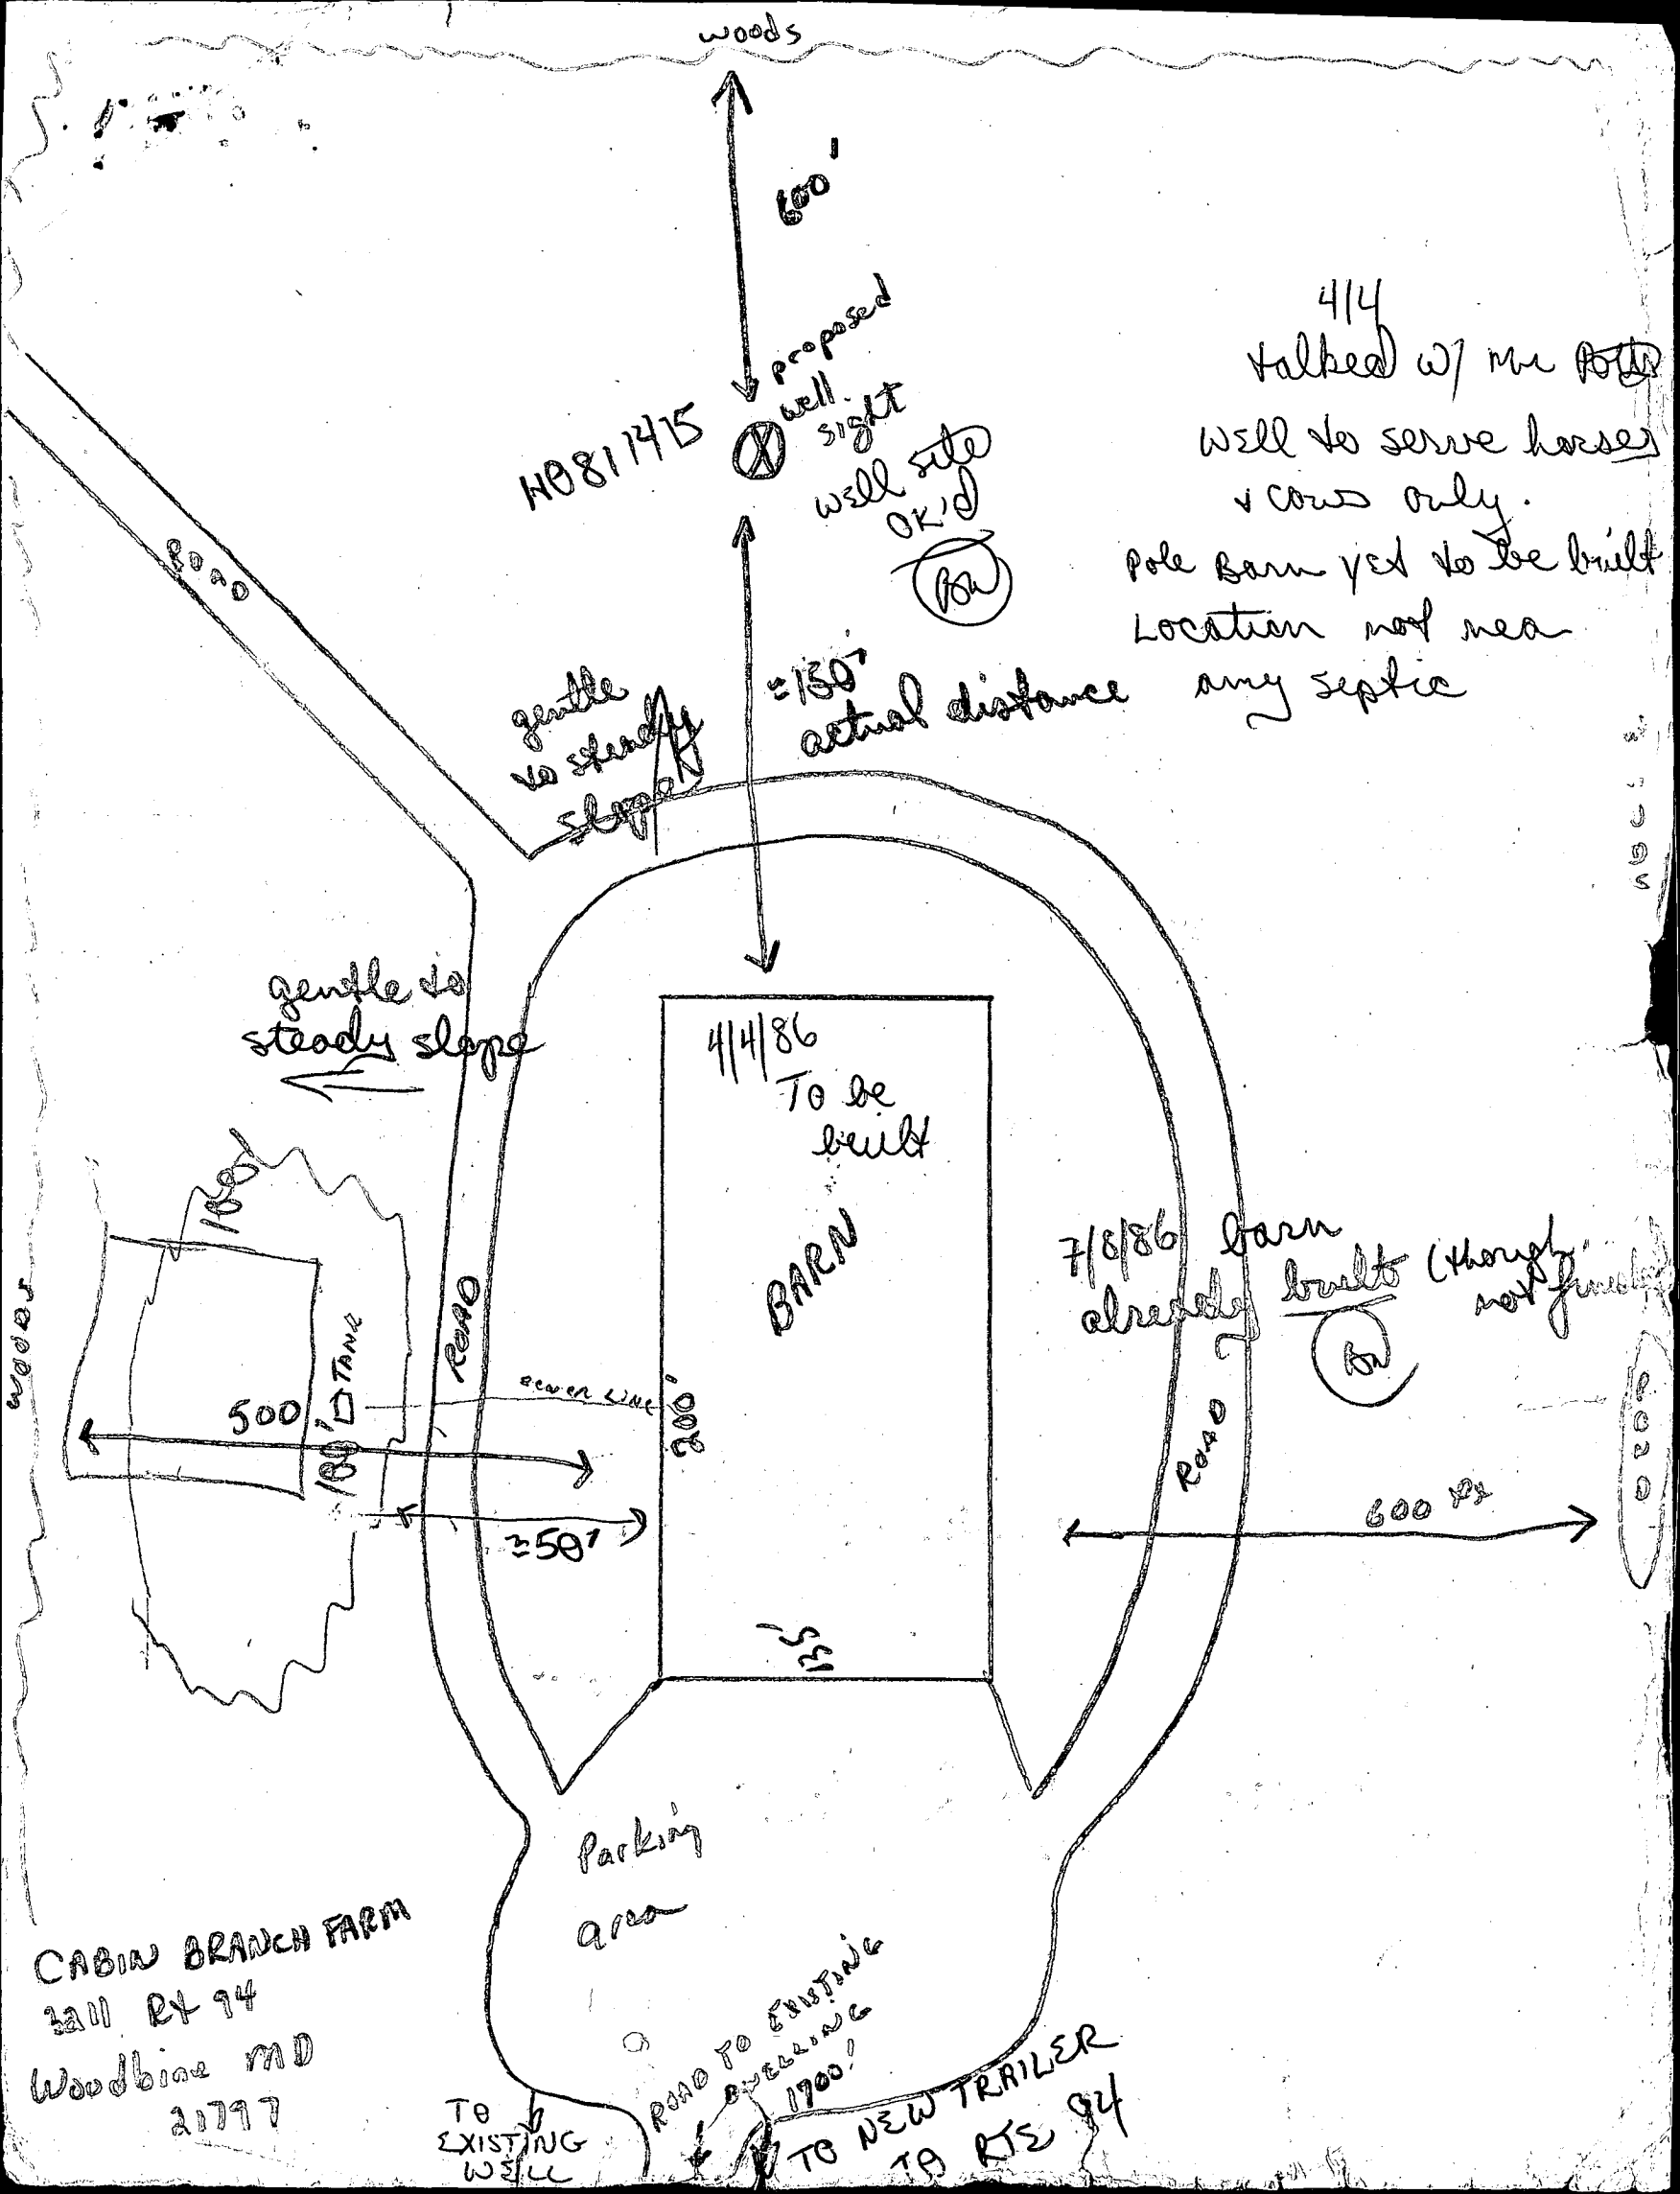 woods
600'
proposed
well
sight
HO811415
well site
OK'd
BW
4/4
talked w/ Mr
well to serve horses
& cows only.
Pole Barn yet to be built
Location not nea
any septic
ROAD
≈150'
actual distance
gentle
to steady
slope
gentle to
steady slope
4/4/86
To be
built
BARN
200'
135'
7/8/86 barn
already built (though
not
BW
woods
TANK
ROAD
SEWER LINE
500
180'
≈50'
ROAD
600
POND
Parking
area
CABIN BRANCH FARM
3211 Rt 94
Woodbine MD
21797
TO
EXISTING
WELL
ROAD TO EXISTING
DWELLING
1700'
TO NEW TRAILER
TO RTE 94